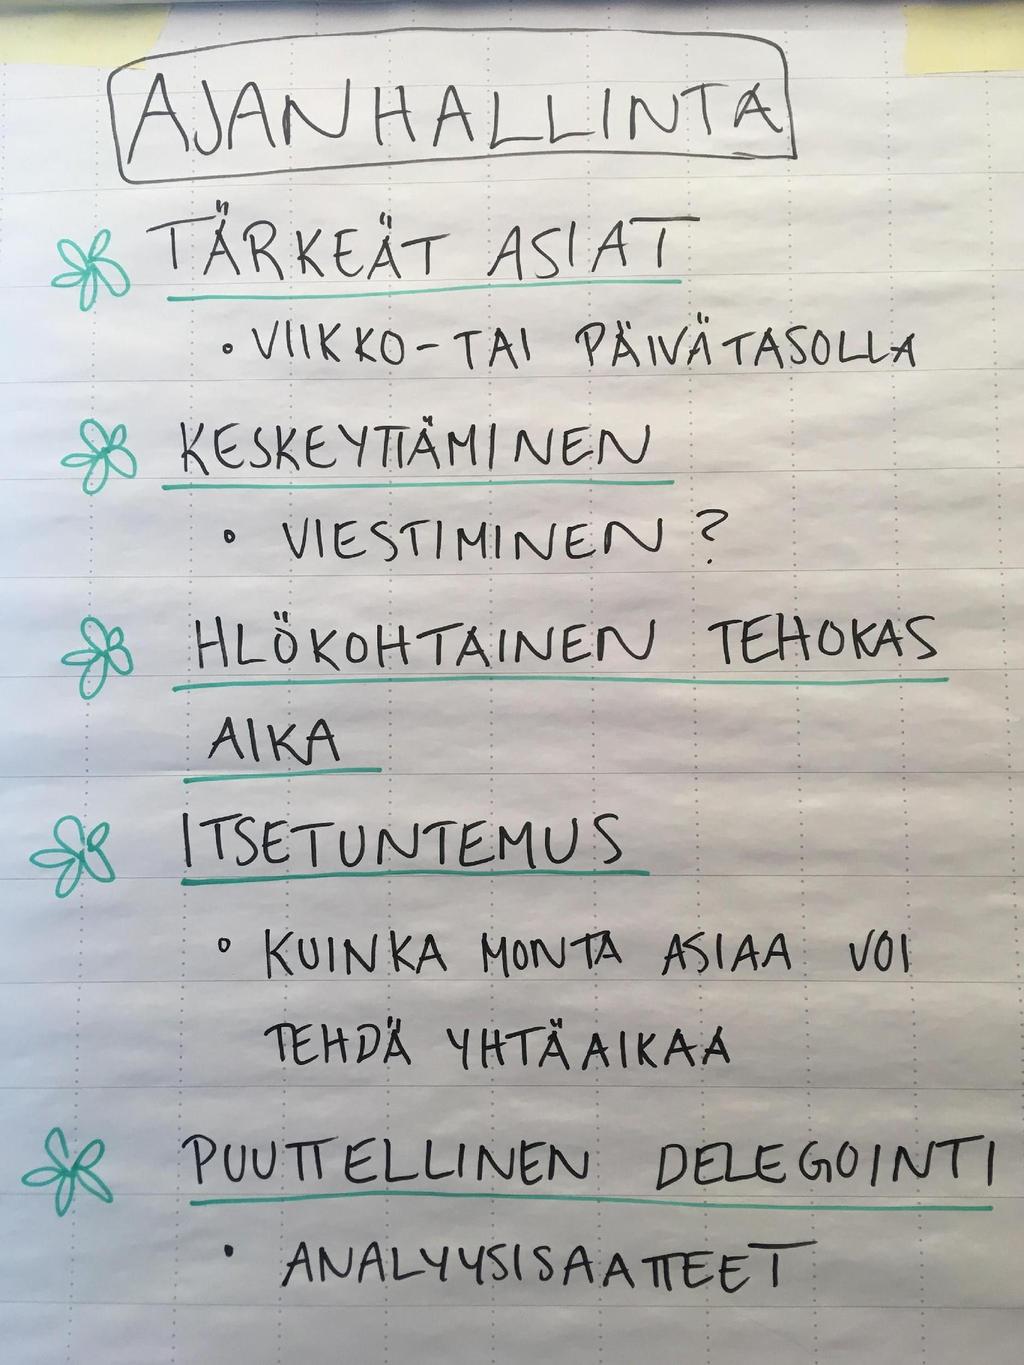 AJANHALLINTA
TÄRKEÄT ASIAT
• VIIKKO- TAI PÄIVÄTASOLLA
KESKEYTTÄMINEN
• VIESTIMINEN?
HLÖKOHTAINEN TEHOKAS
AIKA
ITSETUNTEMUS
• KUINKA MONTA ASIAA VOI
TEHDÄ YHTÄAIKAA
PUUTTELLINEN DELEGOINTI
• ANALYYSISAATTEET